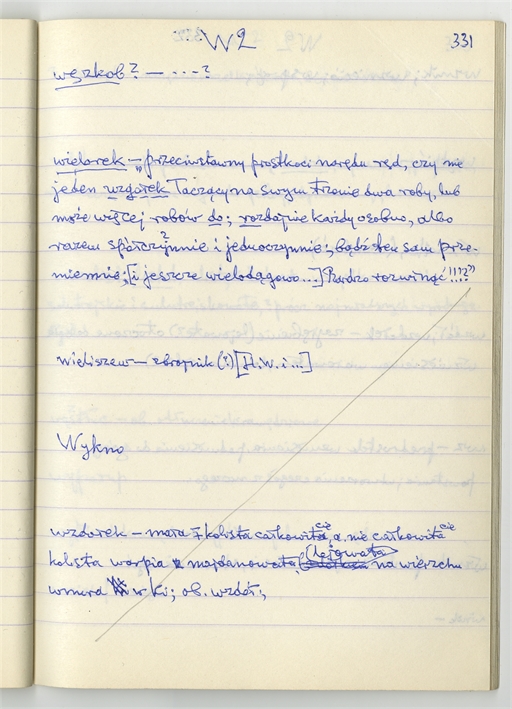 W2
331
węzkob? – ---?
więlorek – „przeciwstawny prostkoci narędu ręd, czy nie
jeden wzgórek łączący na swym trzonie dwa roby, lub
może więcej robów do; rozdajnie każdy osobno, albo
razem spółczynnie i jednoczynnie; bądź ten sam prze-
miennie; [i jeszcze wielodągowo...] Bardzo rozwinąć !!!?"
wieliszew – zbrojnik (?) [H.W. i ...]
Wykno
wzdorek – mała kolista całkowita, a nie całkowita
kolista warpia majdanowata na wierzchu
wnura w ki; ob. wzdół;